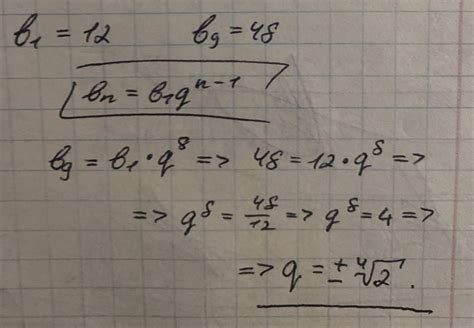 b₁ = 12 b₉ = 48
bₙ = b₁qⁿ⁻¹
b₉ = b₁ · q⁸ => 48 = 12 · q⁸ =>
=> q⁸ = 48/12 => q⁸ = 4 =>
=> q = ± ⁴√2 .